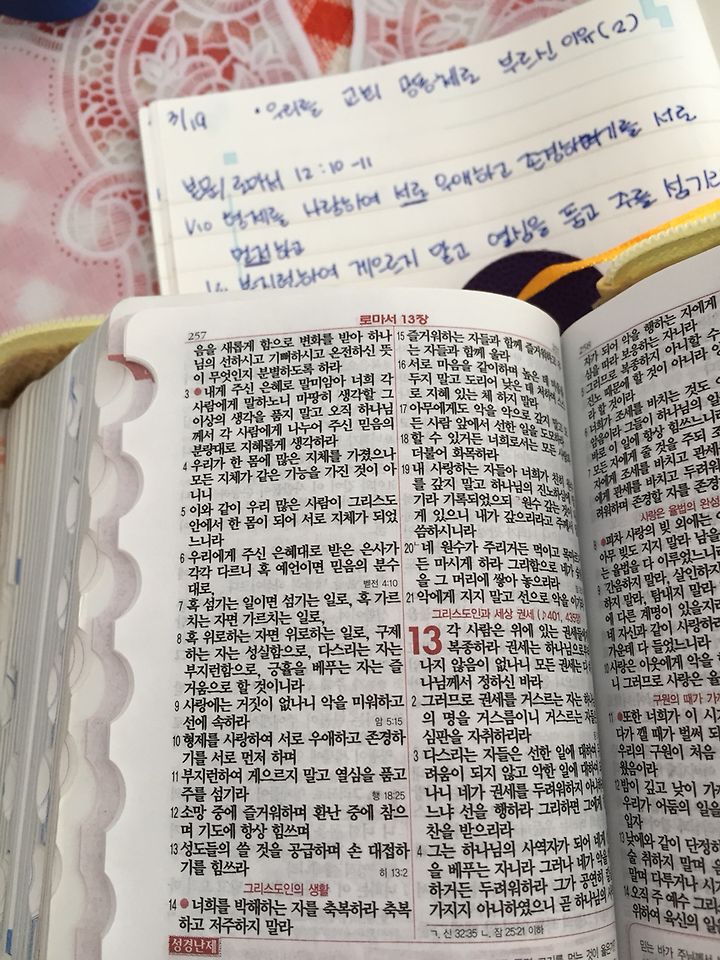 3/19 • 우리를 교회 공동체로 부르신 이유(2)
본문/ 로마서 12:10-11
V10 형제를 사랑하여 서로 우애하고 존경하기를 서로
먼저 하고
부지런하여 게으르지 말고 열심을 품고 주를 섬기
로마서 13장
257
음을 새롭게 함으로 변화를 받아 하나
님의 선하시고 기뻐하시고 온전하신 뜻
이 무엇인지 분별하도록 하라
3 ●내게 주신 은혜로 말미암아 너희 각
사람에게 말하노니 마땅히 생각할 그
이상의 생각을 품지 말고 오직 하나님
께서 각 사람에게 나누어 주신 믿음의
분량대로 지혜롭게 생각하라
4 우리가 한 몸에 많은 지체를 가졌으나
모든 지체가 같은 기능을 가진 것이 아
니니
5 이와 같이 우리 많은 사람이 그리스도
안에서 한 몸이 되어 서로 지체가 되었
느니라
6 우리에게 주신 은혜대로 받은 은사가
각각 다르니 혹 예언이면 믿음의 분수
대로,
벧전 4:10
7 혹 섬기는 일이면 섬기는 일로, 혹 가르
치는 자면 가르치는 일로,
8 혹 위로하는 자면 위로하는 일로, 구제
하는 자는 성실함으로, 다스리는 자는
부지런함으로, 긍휼을 베푸는 자는 즐
거움으로 할 것이니라
9 사랑에는 거짓이 없나니 악을 미워하고
선에 속하라
암 5:15
10 형제를 사랑하여 서로 우애하고 존경하
기를 서로 먼저 하며
11 부지런하여 게으르지 말고 열심을 품고
주를 섬기라
행 18:25
12 소망 중에 즐거워하며 환난 중에 참으
며 기도에 항상 힘쓰며
13 성도들의 쓸 것을 공급하며 손 대접하
기를 힘쓰라
히 13:2
그리스도인의 생활
14 ●너희를 박해하는 자를 축복하라 축복
하고 저주하지 말라
성경난제
15 즐거워하는 자들과 함께 즐거워하고
는 자들과 함께 울라
16 서로 마음을 같이하며 높은 데
두지 말고 도리어 낮은 데 처하며
로 지혜 있는 체 하지 말라
17 아무에게도 악을 악으로 갚지 말고
든 사람 앞에서 선한 일을 도모하라
18 할 수 있거든 너희로서는 모든 사람과
더불어 화목하라
19 내 사랑하는 자들아 너희가 친히
를 갚지 말고 하나님의 진노하심에
기라 기록되었으되 원수 갚는 것이
게 있으니 내가 갚으리라고 주께서
씀하시니라
20 네 원수가 주리거든 먹이고 목마르
든 마시게 하라 그리함으로 네가 숯불
을 그 머리에 쌓아 놓으리라
21 악에게 지지 말고 선으로 악을 이기라
그리스도인과 세상 권세
13 각 사람은 위에 있는 권세들에
복종하라 권세는 하나님으로부
나지 않음이 없나니 모든 권세는 다
나님께서 정하신 바라
2 그러므로 권세를 거스르는 자는 하나
의 명을 거스름이니 거스르는 자들은
심판을 자취하리라
3 다스리는 자들은 선한 일에 대하여
려움이 되지 않고 악한 일에 대하여
나니 네가 권세를 두려워하지 아니하
느냐 선을 행하라 그리하면 그에게
찬을 받으리라
4 그는 하나님의 사역자가 되어 네게
을 베푸는 자니라 그러나 네가 악을
하거든 두려워하라 그가 공연히 칼을
가지지 아니하였으니 곧 하나님의
ㄱ. 신 32:35 ㄴ. 잠 25:21 이하
258
차가 되어 악을 행하는 자에게
심을 따라 보응하는 자니라
5 그러므로 복종하지 아니할 수
진노 때문에 할 것이 아니라
라 할 것이라
6 너희가 조세를 바치는 것도
일꾼이라 그들이 하나님의 일
바로 이 일에 항상 힘쓰느니라
7 모든 자에게 줄 것을 주되 조
자에게 조세를 바치고 관세
에게 관세를 바치고 두려워할
려워하며 존경할 자를 존경
사랑은 율법의 완성
8 ●피차 사랑의 빚 외에는
아무 빚도 지지 말라 남을
는 율법을 다 이루었느니라
9 간음하지 말라, 살인하지
하지 말라, 탐내지 말라
에 다른 계명이 있을지라
네 자신과 같이 사랑하라
가운데 다 들었느니라
10 사랑은 이웃에게 악을
니 그러므로 사랑은 율
구원의 때가 가
11 ●또한 너희가 이 시
다가 깰 때가 벌써 되
우리의 구원이 처음
왔음이라
12 밤이 깊고 낮이 가
우리가 어둠의 일을
입자
13 낮에와 같이 단정히
술 취하지 말며 음
말며 다투거나 시기
14 오직 주 예수 그리스
위하여 육신의 일을